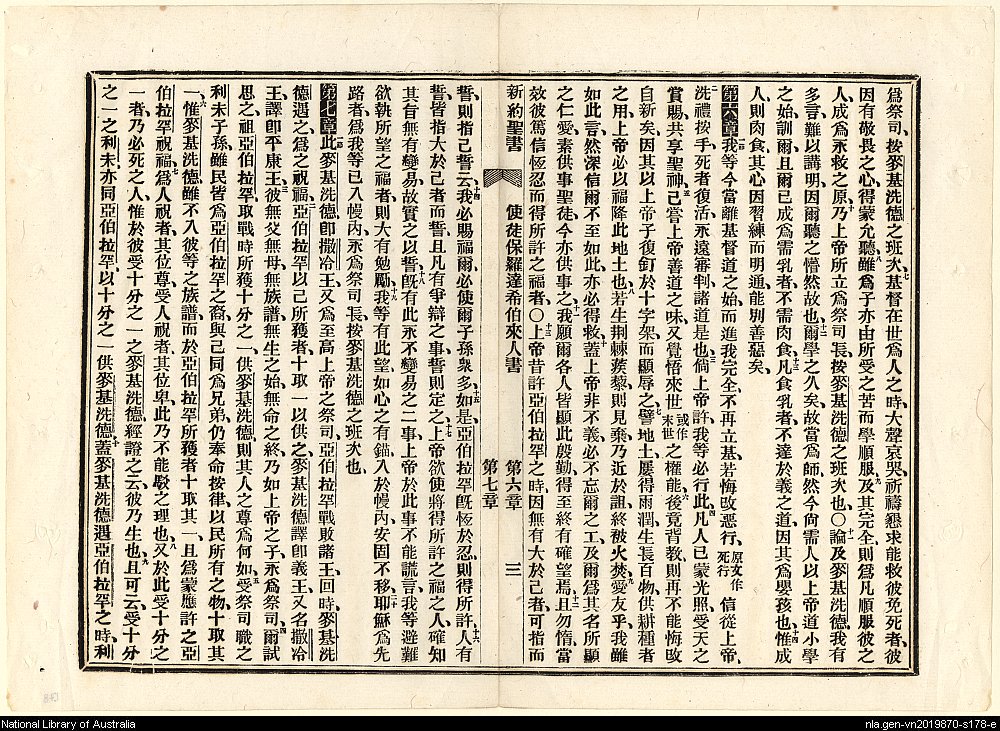 爲祭司、按麥基洗德之班次、基督在世爲人之時、大聲哀哭、祈禱懇求能救彼免死者、彼
因有敬畏之心、得蒙允聽、雖爲子、亦由所受之苦而學順服、及其完全、則爲凡順服彼之
人、成爲永救之原、乃上帝所立爲祭司長、按麥基洗德之班次也、〇論及麥基洗德、我有
多言、難以講明、因爾聽之懵然故也、爾學之久矣、故當爲師、然今尚需人以上帝道小學
之始訓爾、且爾已成爲需乳者、不需肉食、凡食乳者、不達於義之道、因其爲嬰孩也、惟成
人則肉食、其心因習練而明通、能別善惡矣、
第六章 我等今當離基督道之始、而進我完全、不再立基、若悔改惡行、原文作死行 信從上帝、
洗禮按手、死者復活、永遠審判諸道是也、倘上帝許我等必行此、凡人已蒙光照、受天之
賞賜、共享聖神、已嘗上帝善道之味、又覺悟來世或作末世之權能、後竟背教、則再不能悔改
自新矣、因其以上帝子復釘於十字架而顯辱之、譬地土屢得雨潤、生長百物、供耕種者
之用、上帝必以福降此地土也、若生荆棘蒺藜、則見棄、乃近於詛、終被火焚、愛友乎、我雖
如此言、然深信爾不至如此、亦必得救、蓋上帝非不義、必不忘爾之工、及爾爲其名所顯
之仁愛、素供事聖徒、今亦供事之、我願爾各人皆顯此殷勤、得至終有確望焉、且勿惰、當
效彼篤信恆忍而得所許之福者、〇上帝昔許亞伯拉罕之時、因無有大於己者可指而
新約聖書 使徒保羅達希伯來人書 第六章 第七章 三
誓、則指己誓云、我必賜福爾、必使爾子孫衆多如是、亞伯拉罕旣恆於忍、則得所許、人有
誓、皆指大於己者而誓、且凡有爭辯之事、誓則定之、上帝欲使將得所許之福之人、確知
其旨無有變易、故實之以誓、旣有此永不變易之二事、上帝於此事不能謊言、我等避難
欲執所望之福者、則大有勉勵、我等有此望、如心之有錨、入於幔內、安固不移、耶穌爲先
路者、爲我等已入幔內、永爲祭司長、按麥基洗德之班次也
第七章 此麥基洗德、卽撒冷王、又爲至高上帝之祭司、亞伯拉罕戰敗諸王回時、麥基洗
德遇之、爲之祝福、亞伯拉罕以己所獲者、十取一以供之、麥基洗德譯卽義王、又名撒冷
王、譯卽平康王、彼無父無母、無族譜、無生之始、無命之終、乃如上帝之子、永爲祭司、爾試
思之、祖亞伯拉罕取戰時所獲十分之一、供麥基洗德、則其人之尊爲何如、受祭司職之
利未子孫、雖民皆爲亞伯拉罕之裔、與己同爲兄弟、仍奉命按律、以民所有之物、十取其
一、惟麥基洗德、雖不入彼等之族譜、而於亞伯拉罕所獲者、十取其一、且爲蒙應許之亞
伯拉罕祝福、爲人祝福者、其位尊、受人祝者、其位卑、此乃不能駁之理也、又於此受十分之
一者、乃必死之人、惟於彼受十分之一之麥基洗德、經證之云、彼乃生也、且可云受十分
之一之利未、亦同亞伯拉罕、以十分之一供麥基洗德、蓋麥基洗德遇亞伯拉罕之時、利
National Library of Australia
nla.gen-vn2019870-s178-e